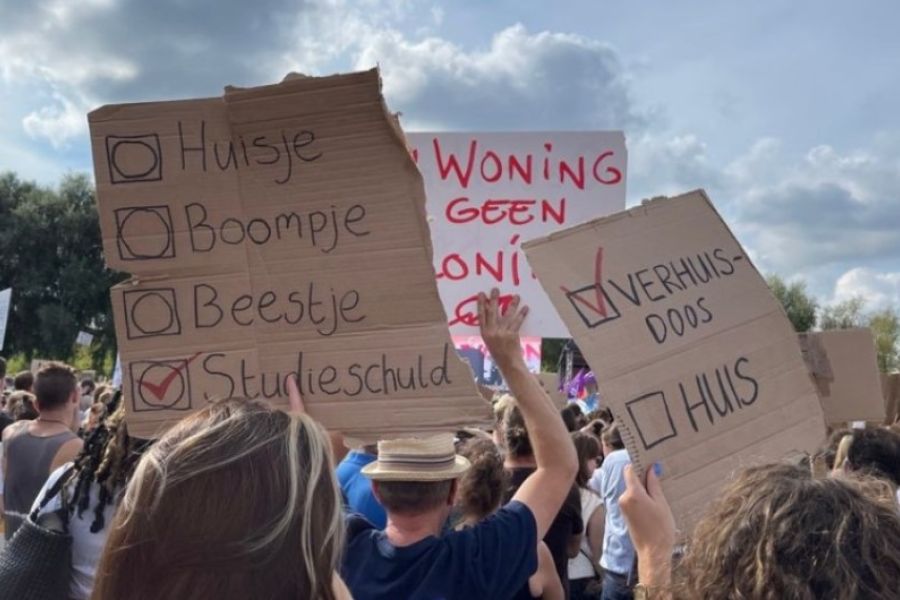 Huisje
Boompje
Beestje
Studieschuld
WONING
GEEN
VERHUIS-
DOOS
HUIS